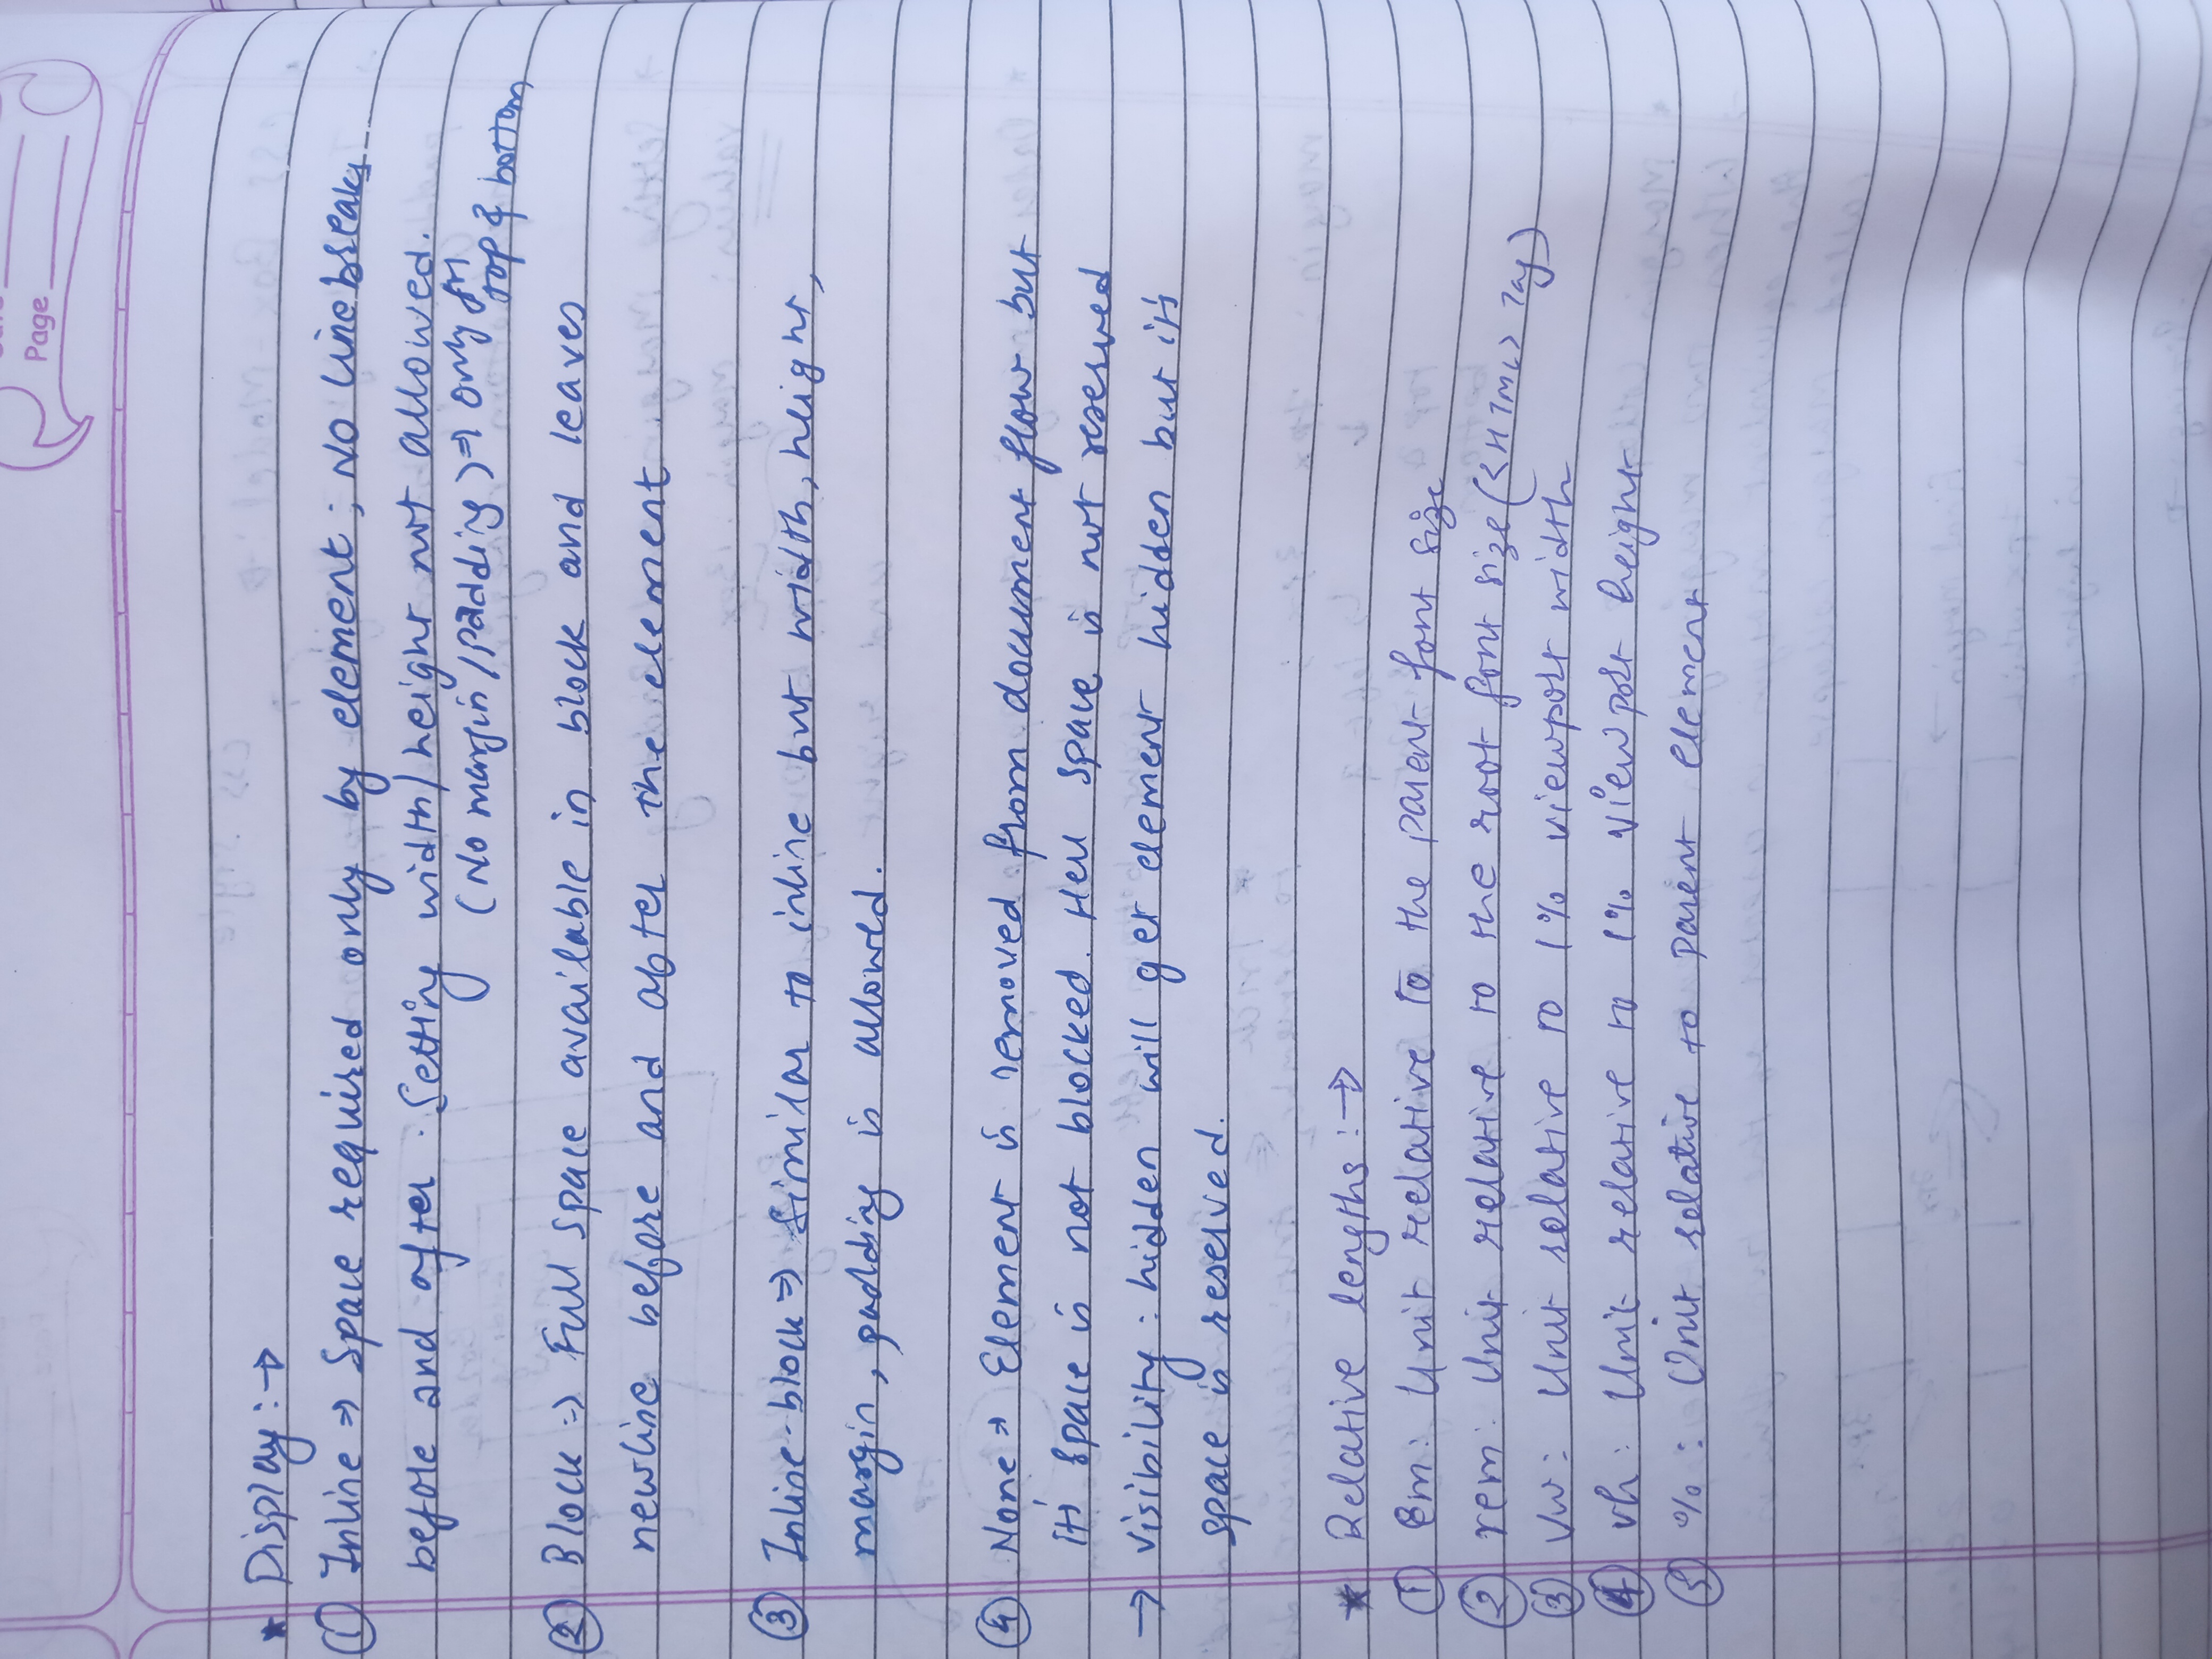 Page
* Display :→
① Inline ⇒ Space required only by element ; No line breaks
before and after . Setting width/height not allowed.
(No margin/padding) ⇒ only for
top & bottom
② Block ⇒ Full space available in block and leaves
newline before and after the element .
③ Inline-block ⇒ Similar to inline but width, height,
margin, padding is allowed.
④ None → Element is removed from document flow but
it's space is not blocked. Here space is not reserved
→ visibility : hidden will get element hidden but it's
space is reserved.
* Relative lengths :→
① em : Unit relative to the parent font size
② rem : Unit relative to the root font size (<HTML> Tag)
③ Vw : Unit relative to 1% viewport width
④ vh : Unit relative to 1% viewport height
⑤ % : Unit relative to parent element